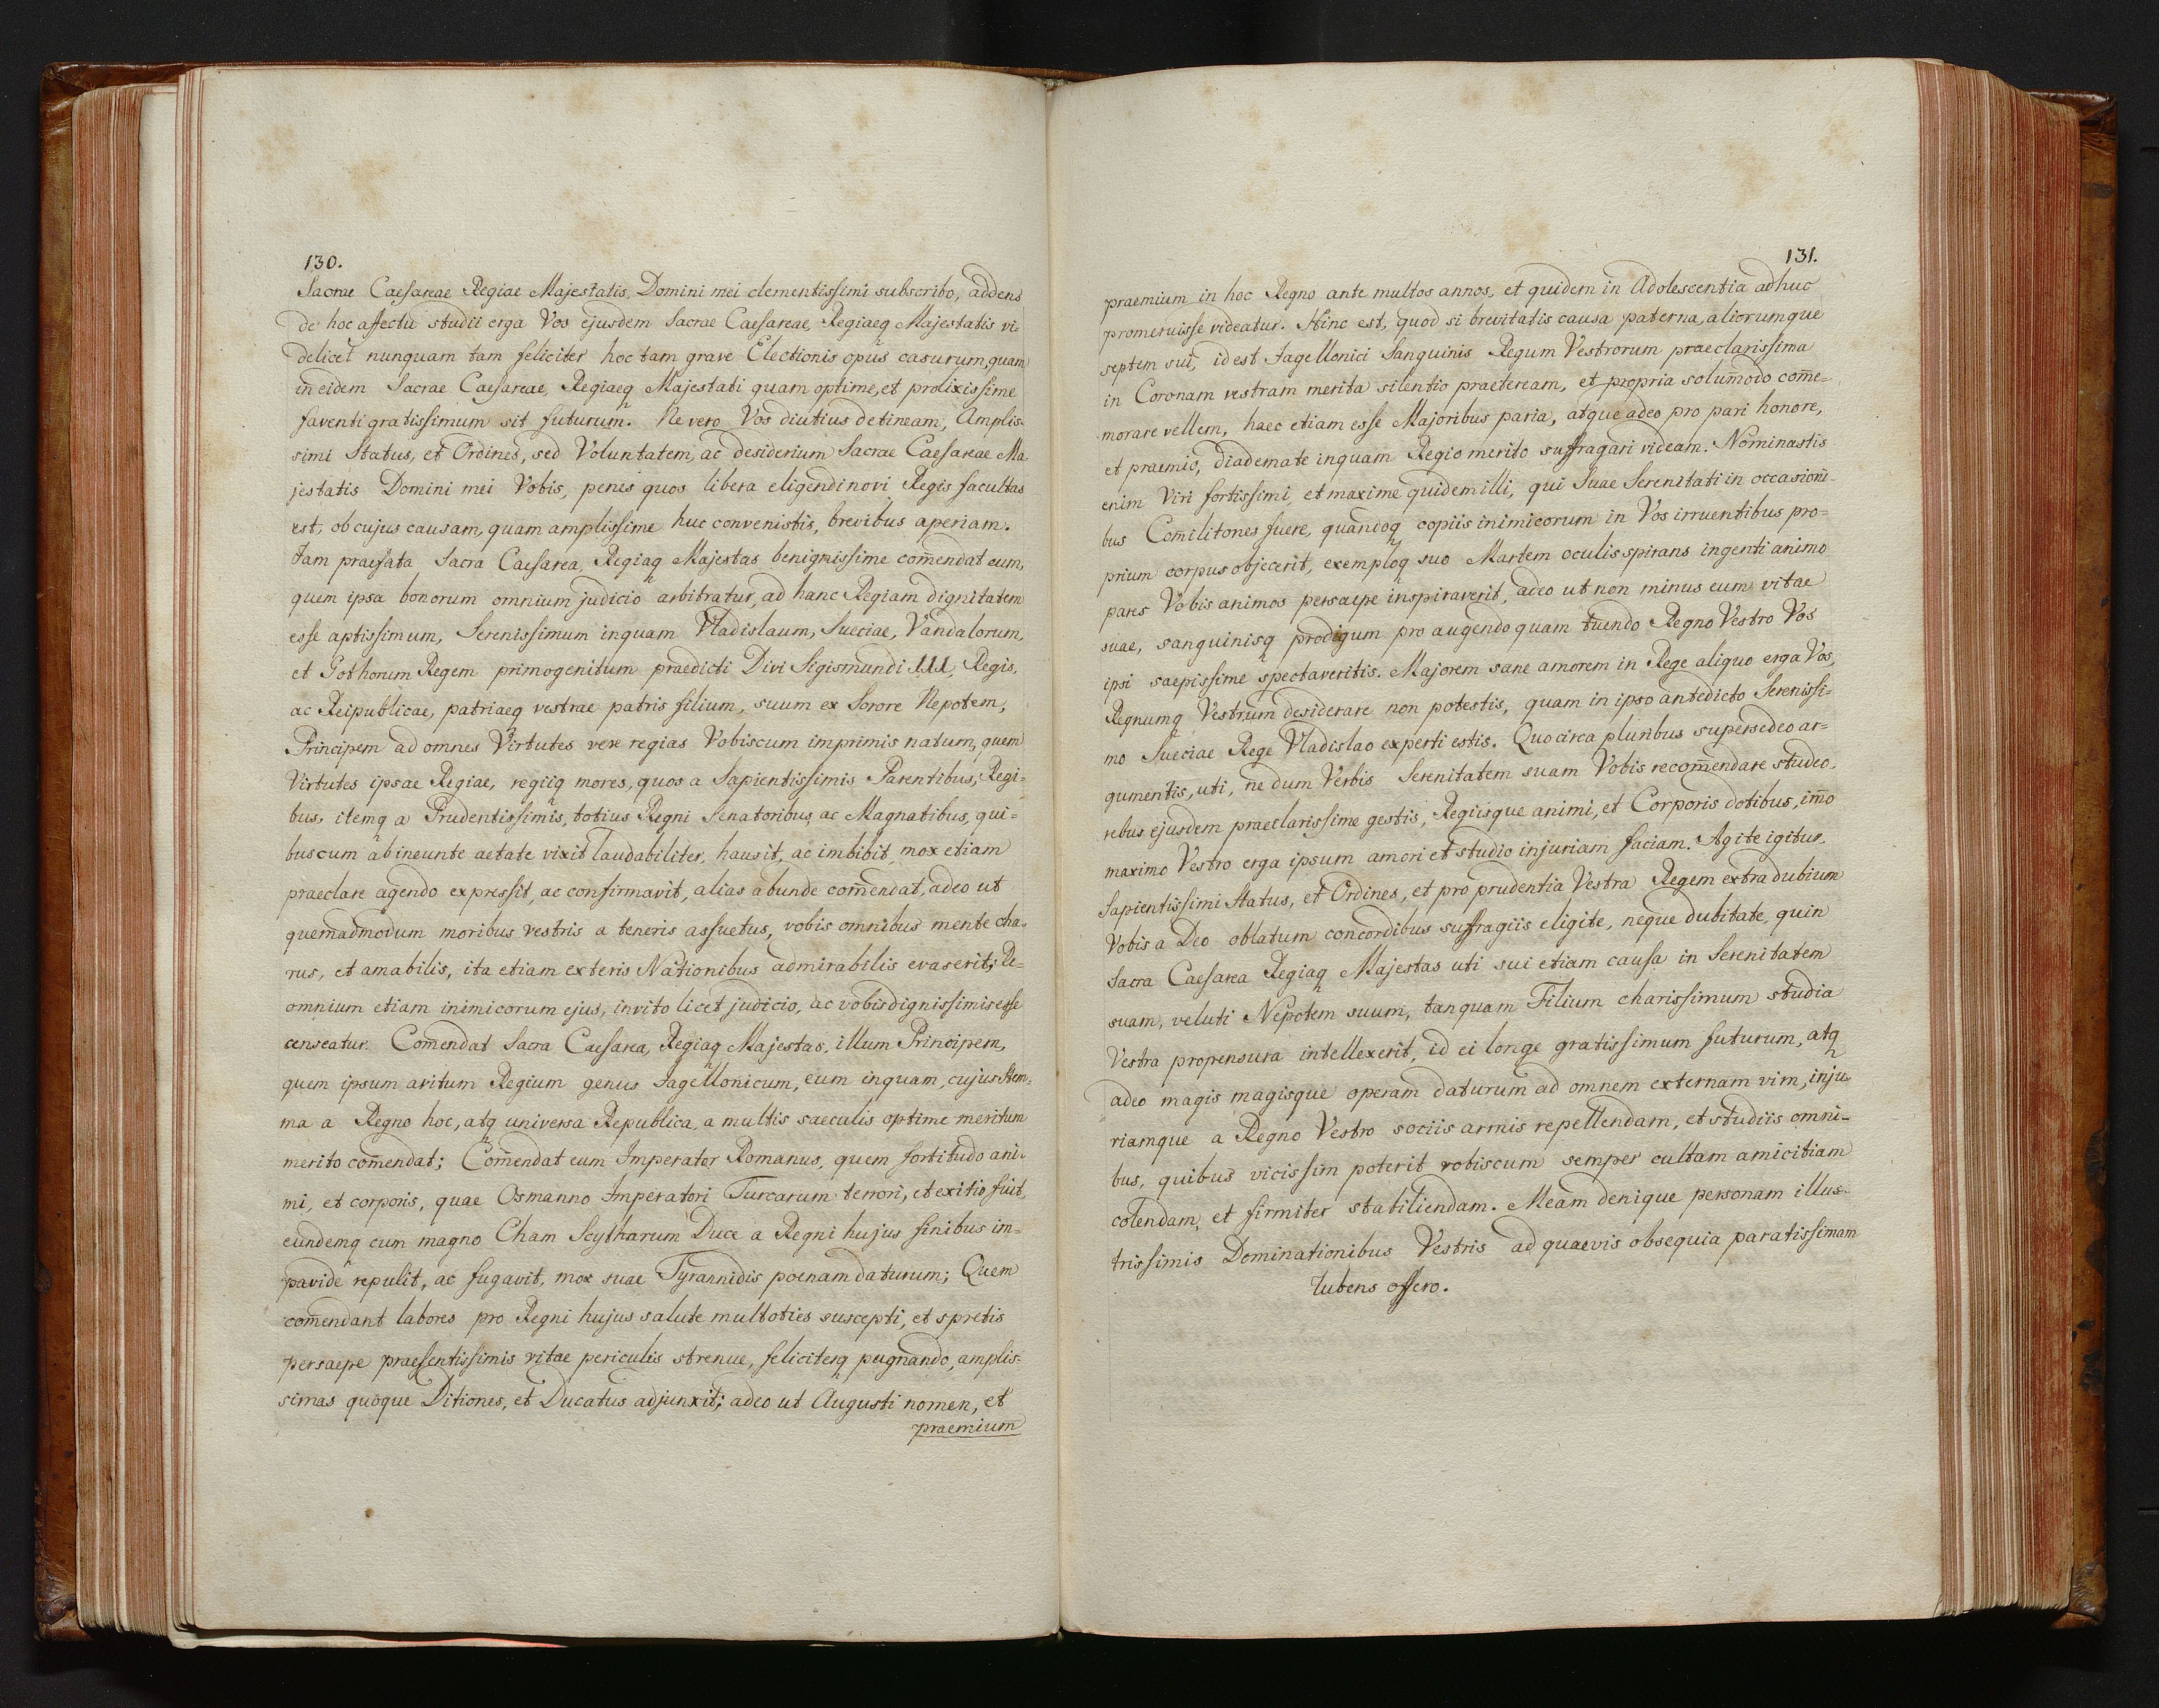 130.
Sacrae Caesareae Regiae Majestatis, Domini mei clementissimi subscribo, addens
de hoc affectu studii erga Vos ejusdem Sacrae Caesareae, Regiaeq Majestatis vi-
delicet nunquam tam feliciter hoc tam grave Electionis opus casurum, quam
in eidem Sacrae Caesareae, Regiaeq Majestati quam optime, et prolixissime
faventi gratissimum sit futurum. Ne vero Vos diutius detineam, Amplis-
simi Status, et Ordines, sed Voluntatem, ac desiderium Sacrae Caesareae Ma
jestatis Domini mei Vobis, penes quos libera eligendi novi Regis facultas
est, ob cujus causam, quam amplissime huc convenistis, brevibus aperiam.
Jam praefata Sacra Caesarea, Regiaq Majestas benignissime com̄endat eum,
quem ipsa bonorum omnium judicio arbitratur, ad hanc Regiam dignitatem
esse aptissimum, Serenissimum inquam Vladislaum, Sueciae, Vandalorum,
et Gothorum Regem primogenitum praedicti Divi Sigismundi III, Regis,
ac Reipublicae, patriaeq vestrae patris filium, suum ex Sorore Nepotem,
Principem ad omnes Virtutes vere regias Vobiscum imprimis natum, quem
Virtutes ipsae Regiae, regiiq mores, quos a Sapientissimis Parentibus, Regi-
bus, itemq a Prudentissimis, totius Regni Senatoribus, ac Magnatibus, qui-
buscum ab ineunte aetate vixit laudabiliter, hausit, ac imbibit, mox etiam
praeclare agendo expressit, ac confirmavit, alias abunde com̄endat, adeo ut
quemadmodum moribus vestris a teneris assuetus, vobis omnibus mente cha-
rus, et amabilis, ita etiam exteris Nationibus admirabilis evaserit; Re-
omnium etiam inimicorum ejus, invito licet judicio, ac vobis dignissimis esse
censeatur. Com̄endat Sacra Caesarea, Regiaq Majestas, illum Principem,
quem ipsum avitum Regium genus Jagellonicum, eum inquam, cujus Stem-
ma a Regno hoc, atq universa Republica, a multis saeculis optime meritum
merito com̄endat; Com̄endat eum Imperator Romanus, quem fortitudo ani-
mi, et corporis, quae Osmanno Imperatori Turcarum terrori, et exitio fuit,
eundemq cum magno Cham Scytharum Duce a Regni hujus finibus im-
pavide repulit, ac fugavit, mox suae Tyrannidis poenam daturum; Quem
com̄endant labores pro Regni hujus salute multoties suscepti, et spretis
persaepe praesentissimis vitae periculis strenue, feliciterq pugnando, amplis-
simas quoque Ditiones, et Ducatus adjunxit; adeo ut Augusti nomen, et
praemium
131.
praemium in hoc Regno ante multos annos, et quidem in Adolescentia adhuc
promeruisse videatur. Hinc est, quod si brevitatis causa paterna, aliorumque
septem sui, id est Jagellonici Sanguinis Regum Vestrorum praeclarissima
in Coronam vestram merita silentio praeteream, et propria solum̄odo com̄e-
morare vellem, haec etiam esse Majoribus paria, atque adeo pro pari honore,
et praemio, diademate inquam Regio merito suffragari videam. Nominastis
enim Viri fortissimi, et maxime quidem illi, qui Suae Serenitati in occasioni-
bus Com̄ilitones fuere, quandoq copiis inimicorum in Vos irruentibus pro-
prium corpus objecerit, exemploq suo Martem oculis spirans ingenti animo
pares Vobis animos persaepe inspiraverit, adeo ut non minus eum vitae
suae, sanguinisq prodigum pro augendo quam tuendo Regno Vestro Vos
ipsi saepissime spectaveritis. Majorem sane amorem in Rege aliquo erga Vos,
Regnumq Vestrum desiderare non potestis, quam in ipso antedicto Serenissi-
mo Sueciae Rege Vladislao experti estis. Quocirca pluribus supersedeo ar-
gumentis, uti, ne dum Verbis Serenitatem suam Vobis recom̄endare studeo,
rebus ejusdem praeclarissime gestis, Regiisque animi, et Corporis dotibus, im̄o
maximo Vestro erga ipsum amori et studio injuriam faciam. Agite igitur.
Sapientissimi Status, et Ordines, et pro prudentia Vestra Regem extra dubium
Vobis a Deo oblatum concordibus suffragiis eligite, neque dubitate, quin
Sacra Caesarea Regiaq Majestas uti sui etiam causa in Serenitatem
suam, veluti Nepotem suum, tanquam Filium charissimum studia
Vestra propensura intellexerit, id ei longe gratissimum futurum, atq
adeo magis magisque operam daturum ad omnem externam vim, inju-
riamque a Regno Vestro sociis armis repellendam, et studiis omni-
bus, quibus vicissim poterit vobiscum semper cultam amicitiam
colendam, et firmiter stabiliendam. Meam denique personam illus-
trissimis Dominationibus Vestris ad quaevis obsequia paratissimam
lubens offero.